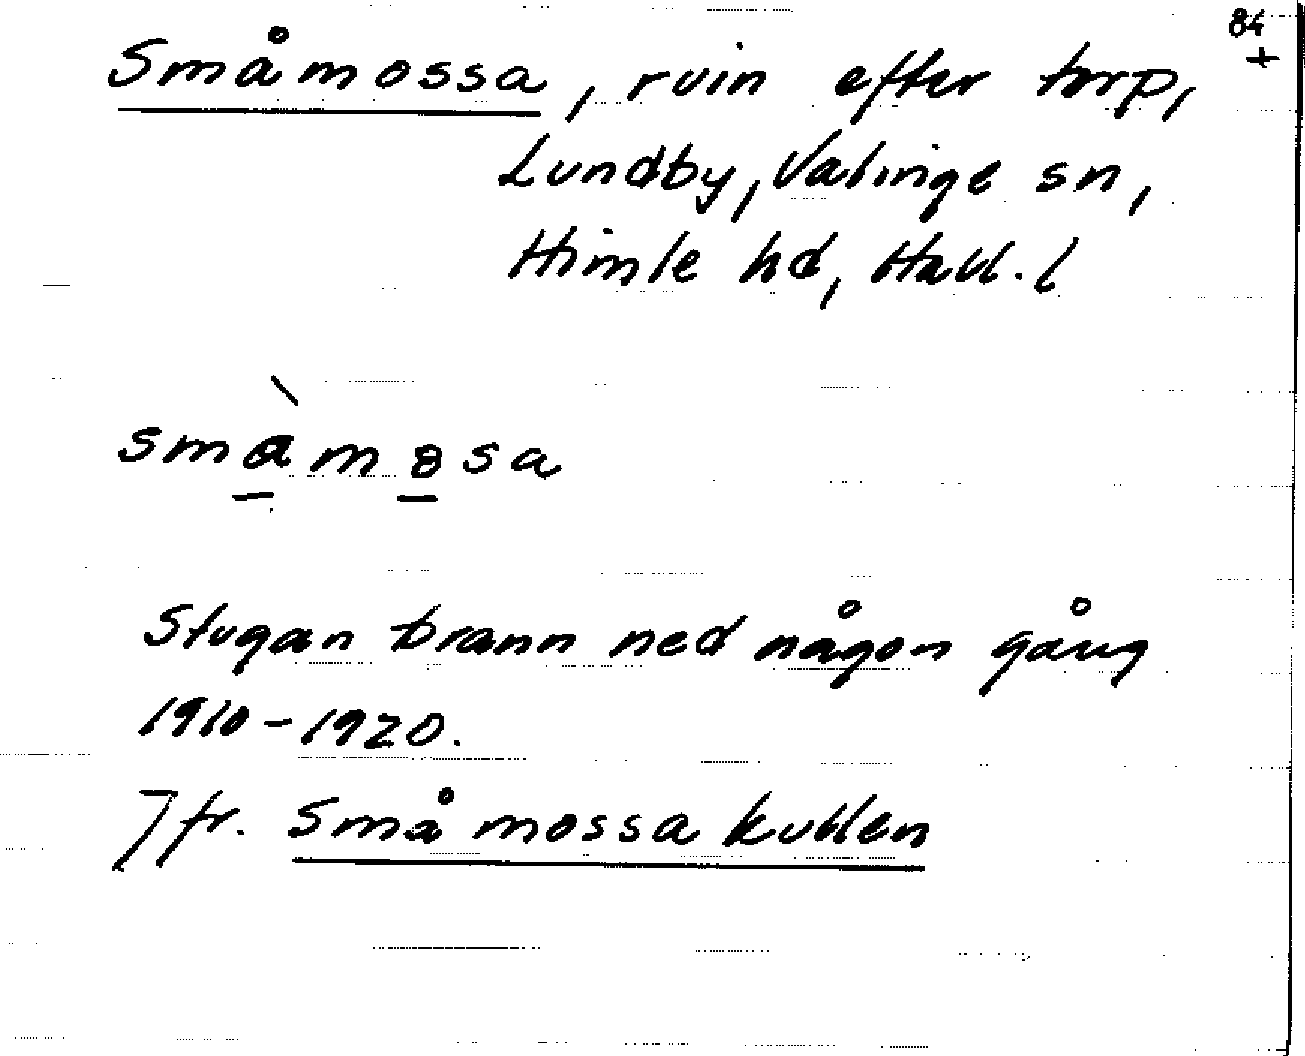 84
+
Småmossa, ruin efter torp,
Lundby, Valinge sn,
Himle hd, Hall. l
smàmosa
Stugan brann ned någon gång
1910-1920.
Jfr. Småmossakullen